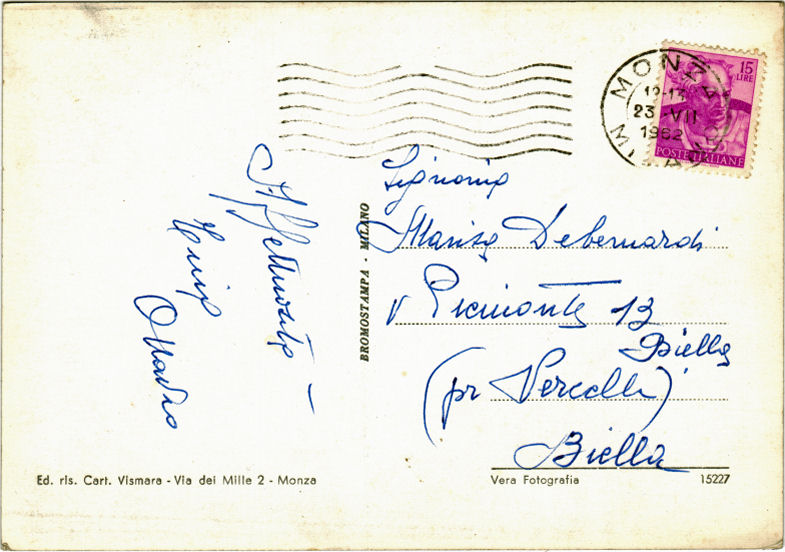 MONZA
12-13
23-VII
1962
MILANO
15
LIRE
POSTE ITALIANE
Affettuosità -
Luigi
Ottavio
BROMOSTAMPA - MILANO
Signorina
Marisa Debernardi
v Piemonte 13
Biella
(pr Vercelli)
Biella
Ed. ris. Cart. Vismara - Via dei Mille 2 - Monza
Vera Fotografia
15227